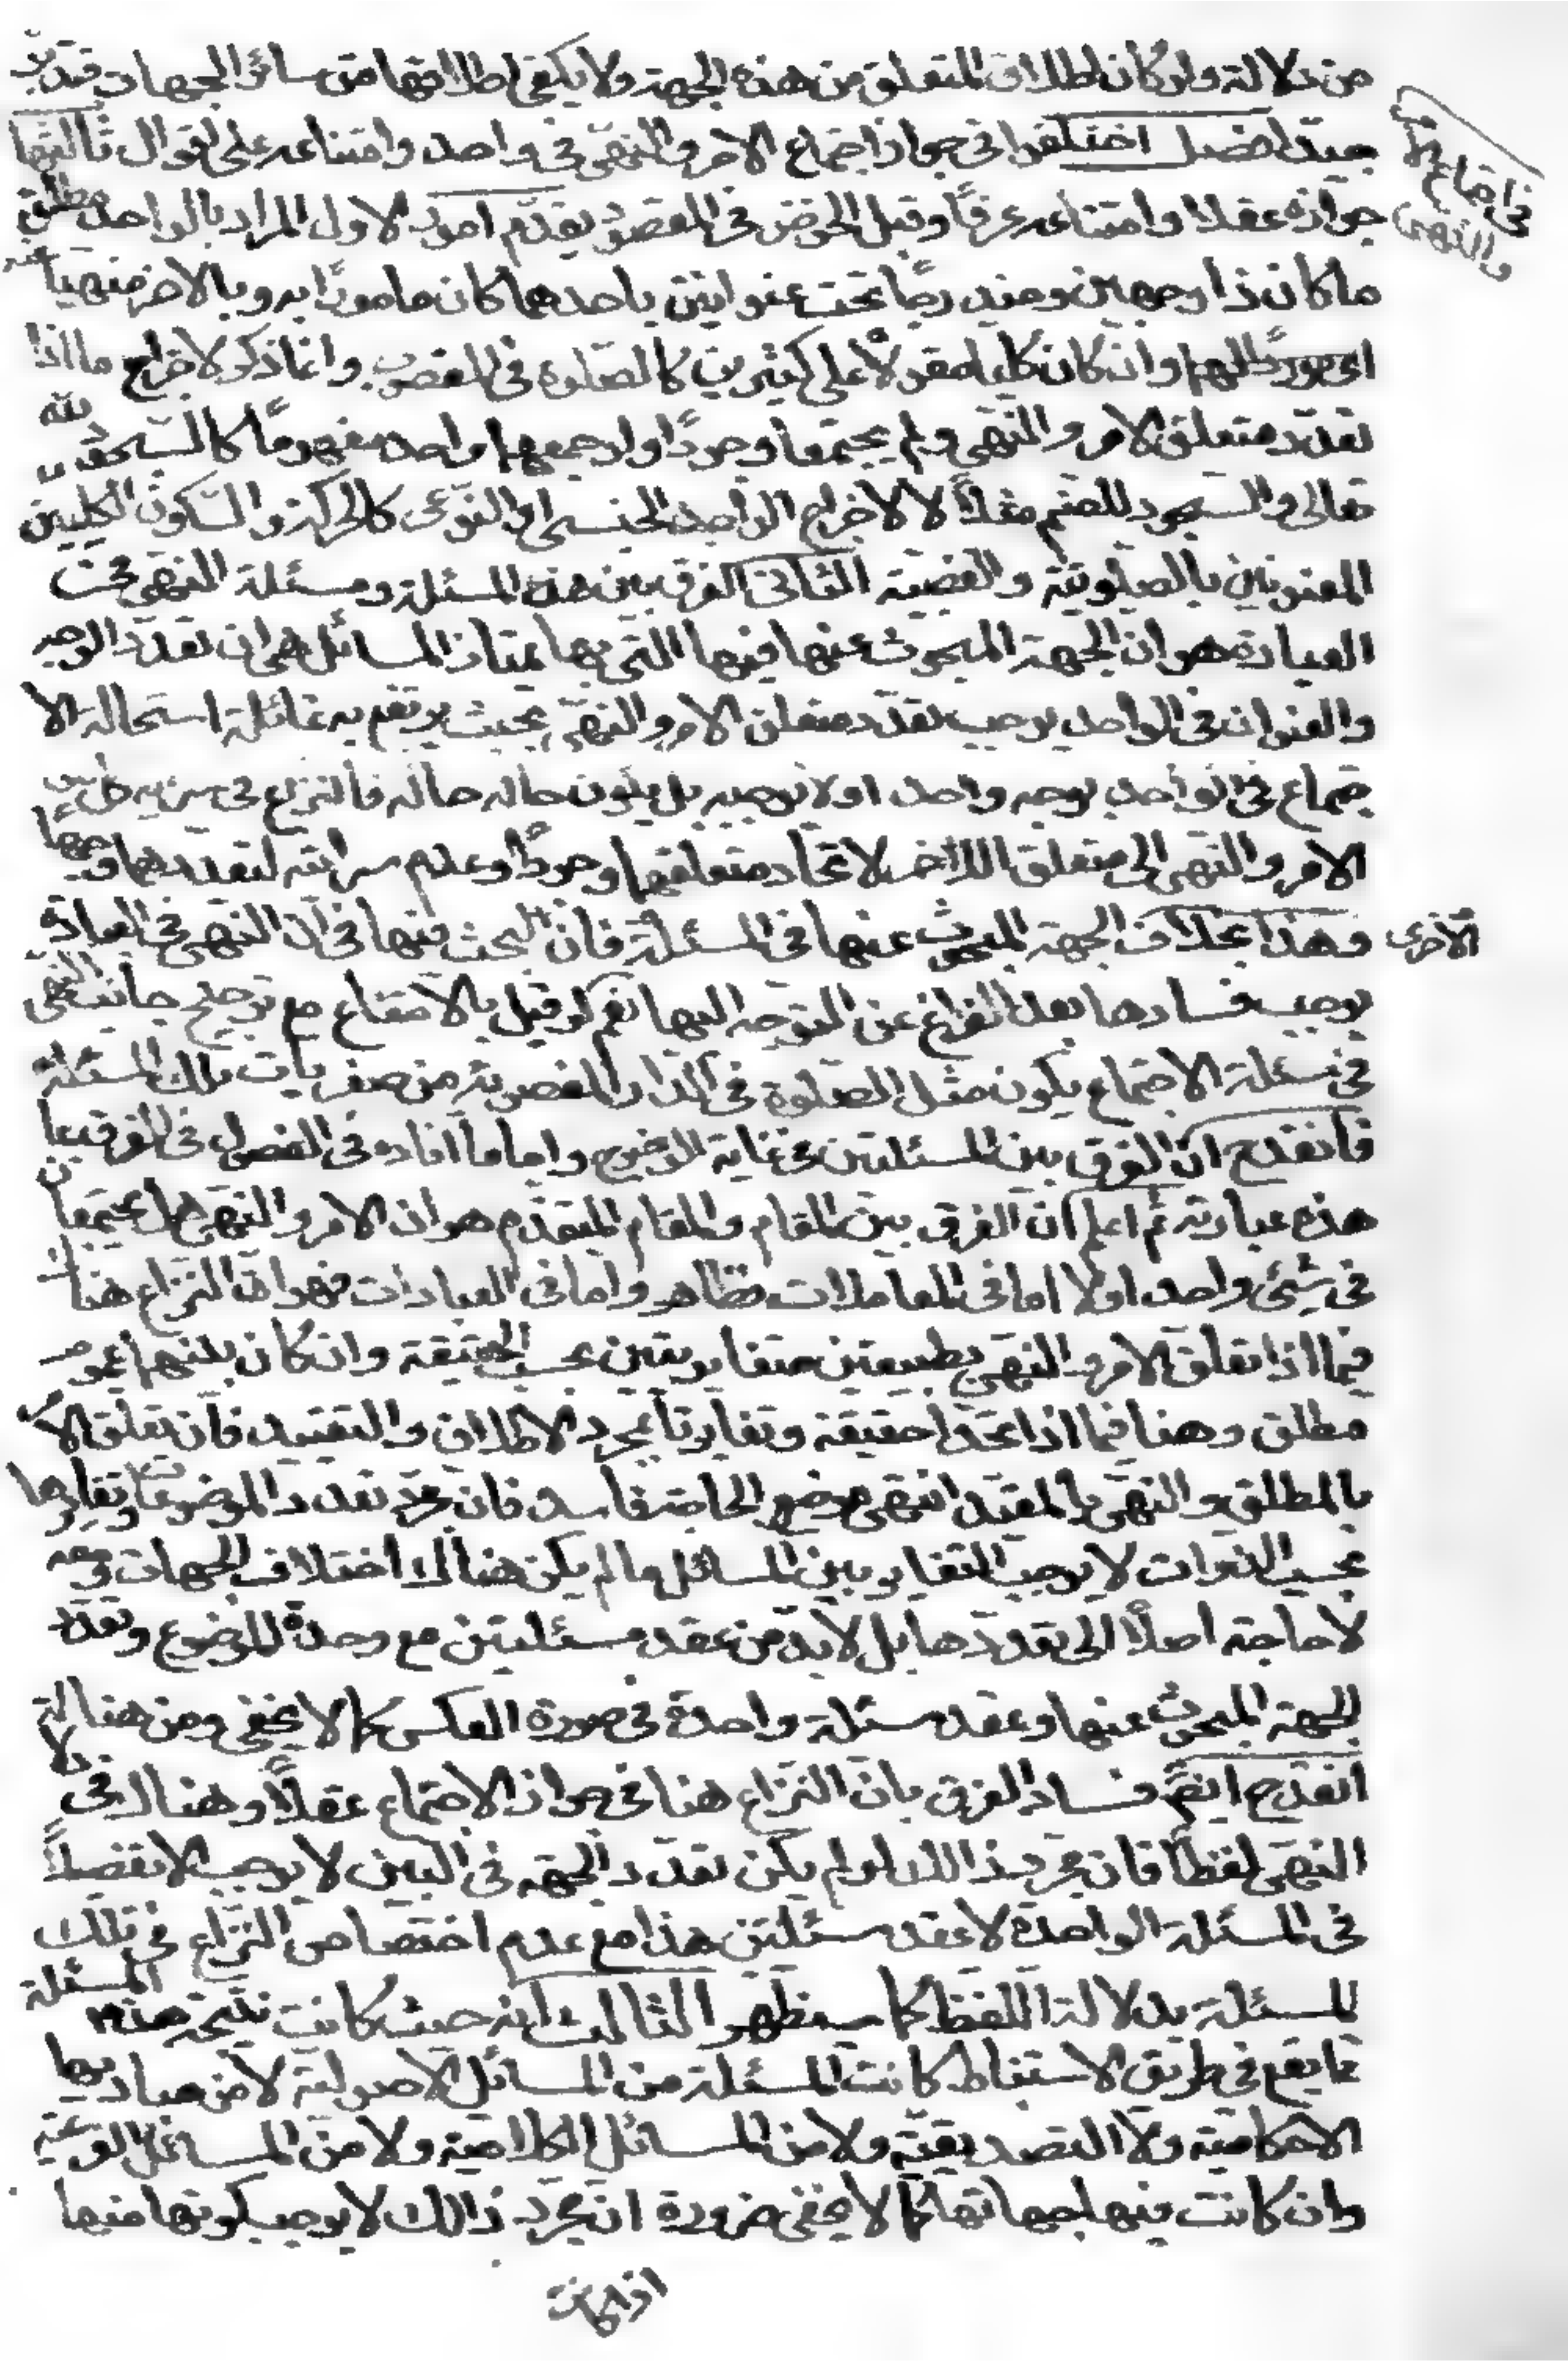 من دلالة ولو كان اطلاق المتعلق من هذه الجهة ولا يكفى اطلاقها من سائر الجهات فتدبر
جيدا فصل اختلفوا فى جواز اجتماع الامر والنهى فى واحد وامتناعه على اقوال ثالثها
فى اجتماع الامر والنهى
جوازه عقلا وامتناعه عرفًا وقبل الخوض فى المقصود يقدّم امور الاول المراد بالواحد مطلق
ما كان ذا وجهين ومندرجًا تحت عنوانين باحدهما كان مامورًا به وبالاخر منهيا عنه
وان كان كليا مقولًا على كثيرين كالصلوة فى المغصوب وانما ذكر لاخراج ما اذا
تعدّد متعلق الامر والنهى ولم يجتمعا وجودًا ولو جمعهما واحد مفهومًا كالسجود لله
تعالى والسجود للصنم مثلًا لا لاخراج الواحد الجنسى او النوعى كالحركة والسكون الكليين
المعنونين بالصلوتية والغصبية الثانى الفرق بين هذه المسئلة ومسئلة النهى فى
العبادة هو ان الجهة المبحوث عنها فيها التى بها تمتاز المسائل هى ان تعدّد الوجه
والعنوان فى الواحد يوجب تعدّد متعلق الامر والنهى بحيث يرتفع به غائلة استحالة الا
جتماع فى الواحد بوجه واحد او لا يوجبه بل يكون حاله حاله فالنزاع فى سراية كل من
الامر والنهى الى متعلق الاخر لاتحاد متعلقيهما وجودًا وعدم سرايته لتعددهما وجها
وهذا بخلاف الجهة المبحوث عنها فى المسئلة فان البحث فيها فى ان النهى فى العبادة
الاخرى
يوجب فسادها بعد الفراغ عن التوجه اليها نعم لو قيل بالامتناع مع ترجيح جانب النهى
فى مسئلة الاجتماع يكون مثل الصلوة فى الدار المغصوبة من صغريات تلك المسئلة
فانقدح انّ الفرق بين المسئلتين فى غاية الوضوح واما ما افاده فى الفصول فى الفرق بما
هذه عبارته ثم اعلم ان الفرق بين المقام والمقام المتقدّم هو ان الامر والنهى هل يجتمعان
فى شئى واحد او لا اما فى المعاملات فظاهر واما فى العبادات فهو انّ النزاع هناك
فيما اذا تعلق الامر والنهى بطبيعتين متغايرتين بحسب الحقيقة وان كان بينهما عموم
مطلق وهنا فيما اذا اتحدتا حقيقة وتغايرتا بمجرد الاطلاق والتقييد فان تعلق الا
بالمطلق والنهى بالمقيّد انتهى موضع الحاجة فاسد فان مجرّد تعدد الموضوعات وتغايرها
بحسب الذوات لا يوجب التغاير بين المسائل ما لم يكن هناك اختلاف الجهات ومعه
لا حاجة اصلًا الى تعددها بل لابدّ من عقد مسئلتين مع وحدة الموضوع وتعدّد
الجهة المبحوث عنها وعقد مسئلة واحدة فى صورة العكس كما لا يخفى ومن هنا
انقدح ايضًا فساد الفرق بان النزاع هنا فى جواز الاجتماع عقلًا وهناك فى دلالة
النهى لفظًا فان مجرد ذالك لو لم يكن تعدّد الجهة فى البين لا يوجب الا تفصيلًا
فى المسئلة الواحدة لا عقد مسئلتين هذا مع عدم اختصاص النزاع فى تلك
المسئلة بدلالة اللفظ كما سيظهر الثالث انه حيث كانت نتيجة هذه المسئلة
مما يقع فى طريق الاستنباط كانت المسئلة من المسائل الاصولية لا من مباديها
الاحكامية ولا التصديقية ولا من المسائل الكلامية ولا من المسائل الفرعية
وان كانت فيها جهاتها كما لا يخفى ضرورة ان مجرّد ذالك لا يوجب كونها منها
اذا كانت